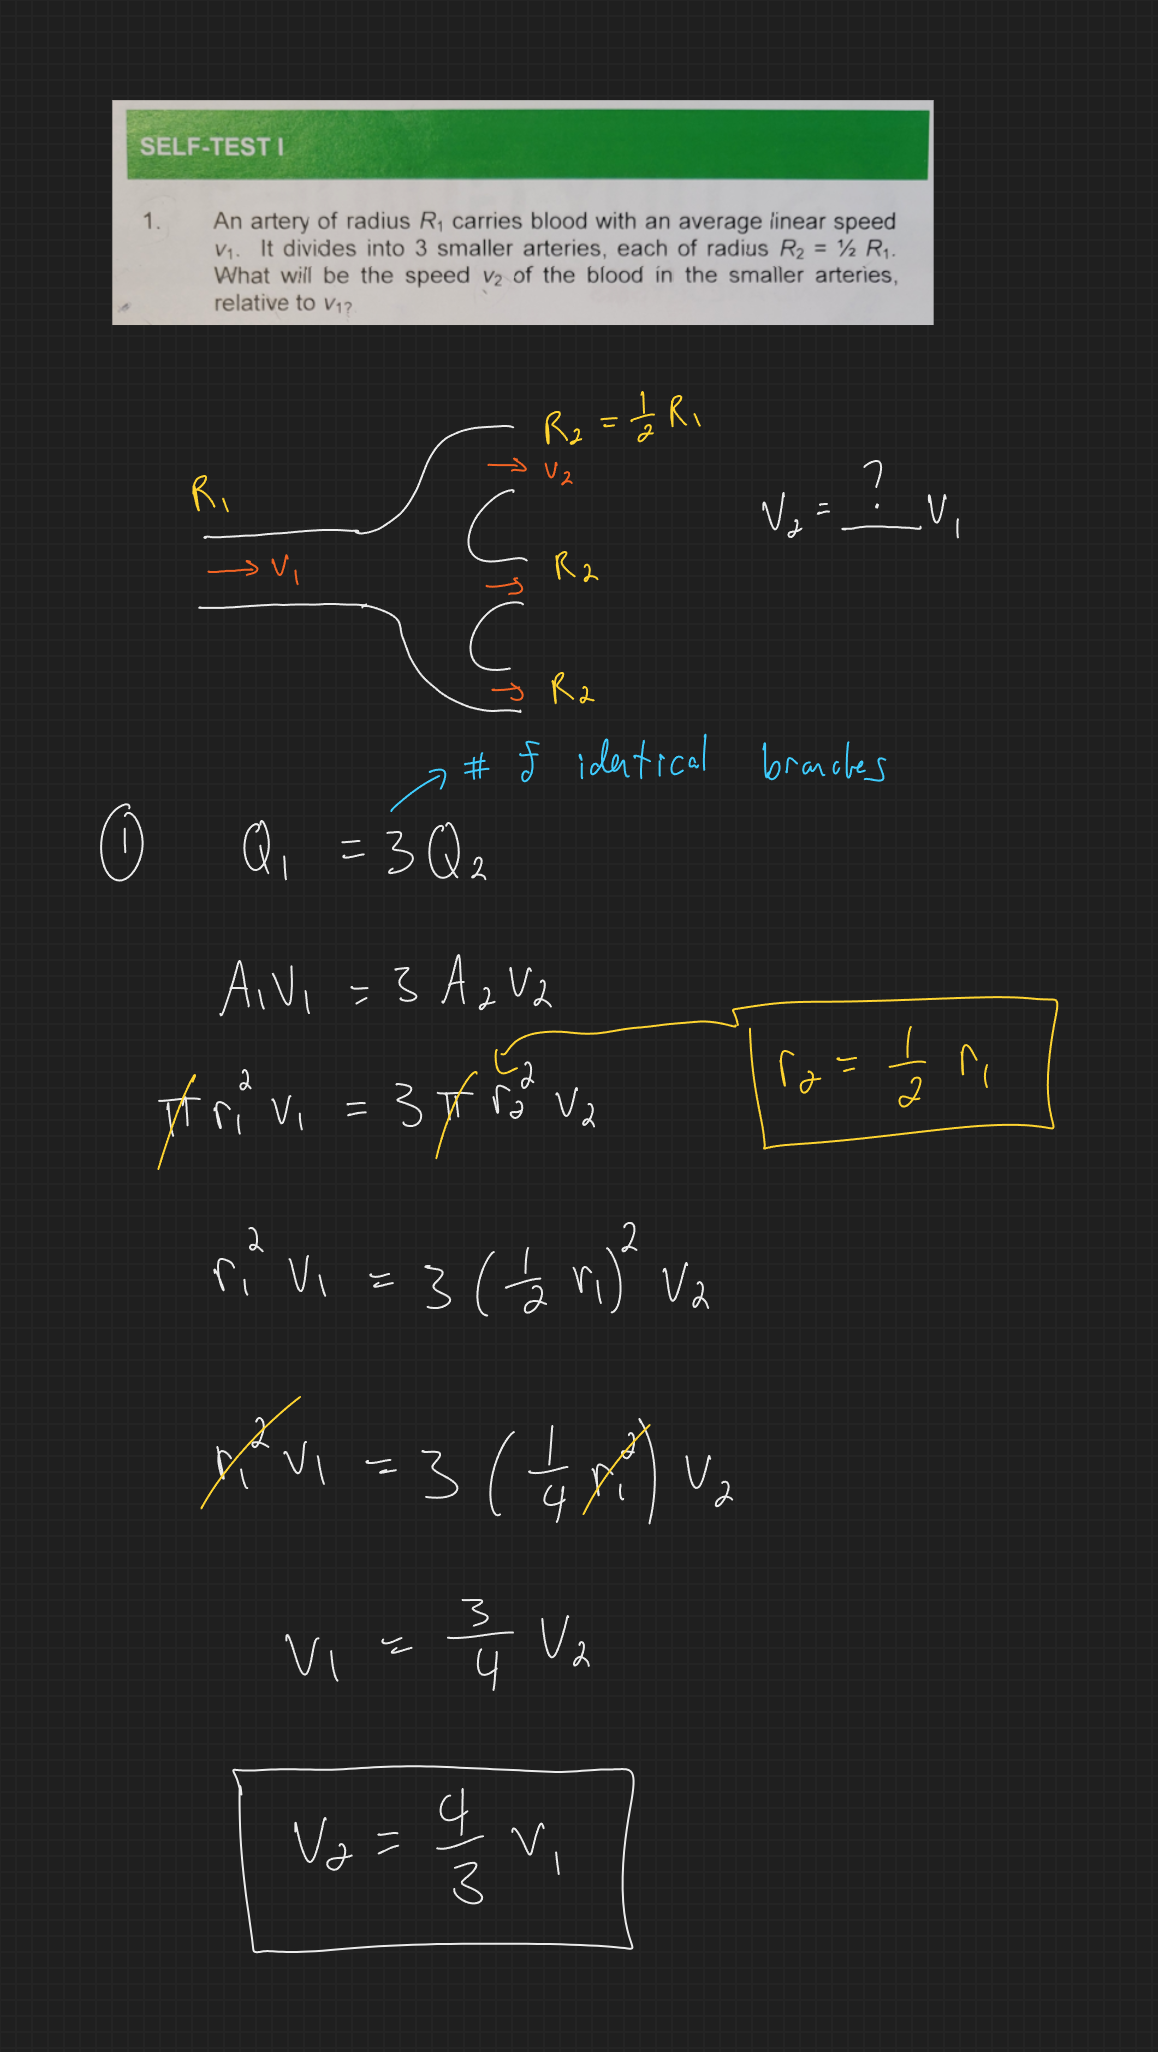 SELF-TEST I
1. An artery of radius R₁ carries blood with an average linear speed
v₁. It divides into 3 smaller arteries, each of radius R₂ = ½ R₁.
What will be the speed v₂ of the blood in the smaller arteries,
relative to v₁?
R₂ = 1/2 R₁
v₂
R₁
V₂ = ? V₁
→ V₁
R₂
R₂
→ # of identical branches
① Q₁ = 3Q₂
A₁V₁ = 3 A₂V₂
r₂ = 1/2 r₁
π r₁² V₁ = 3 π r₂² V₂
r₁² V₁ = 3 (1/2 r₁)² V₂
r₁² V₁ = 3 (1/4 r₁²) V₂
V₁ = 3/4 V₂
V₂ = 4/3 V₁